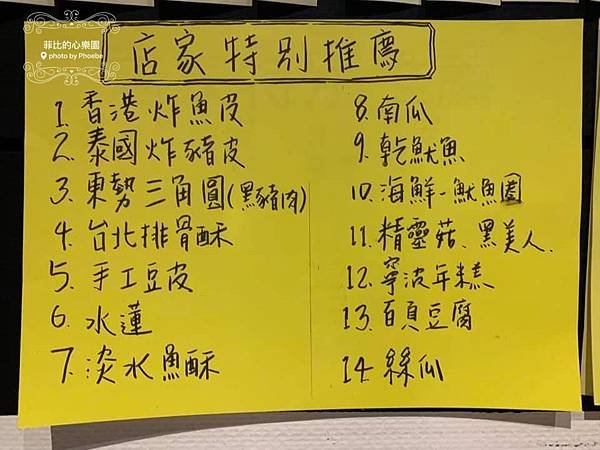 菲比的心樂園
photo by Phoebe
店家特別推薦
1. 香港炸魚皮
2. 泰國炸豬皮
3. 東勢三角圓(黑豬肉)
4. 台北排骨酥
5. 手工豆皮
6. 水蓮
7. 淡水魚酥
8. 南瓜
9. 乾魷魚
10. 海鮮-魷魚圈
11. 精靈菇、黑美人.
12. 寧波年糕
13. 百頁豆腐
14. 絲瓜